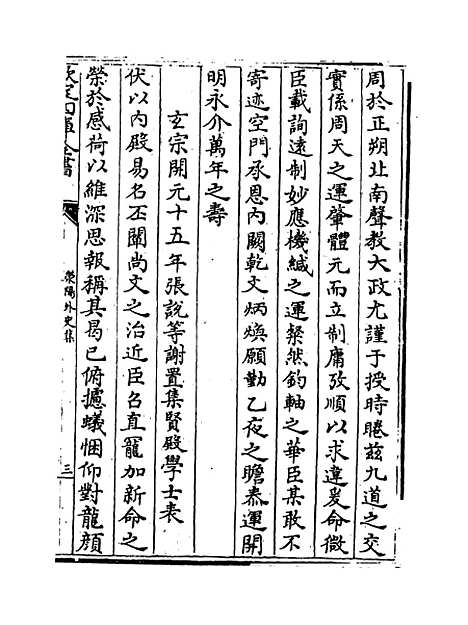 周於正朔北南聲教大政尤謹于授時睠兹九道之交
實係周天之運肇體元而立制庸攷順以求違爰命微
臣載詢遠制妙應機緘之運粲然鈞軸之華臣某敢不
寄迹空門承恩内闕乾文炳煥願勤乙夜之瞻泰運開
明永介萬年之壽
玄宗開元十五年張説等謝置集賢殿學士表
伏以内殿易名丕闡尚文之治近臣召直寵加新命之
榮於感荷以維深思報稱其曷已俯攄蟻悃仰對龍顔
欽定四庫全書
滎陽外史集
三